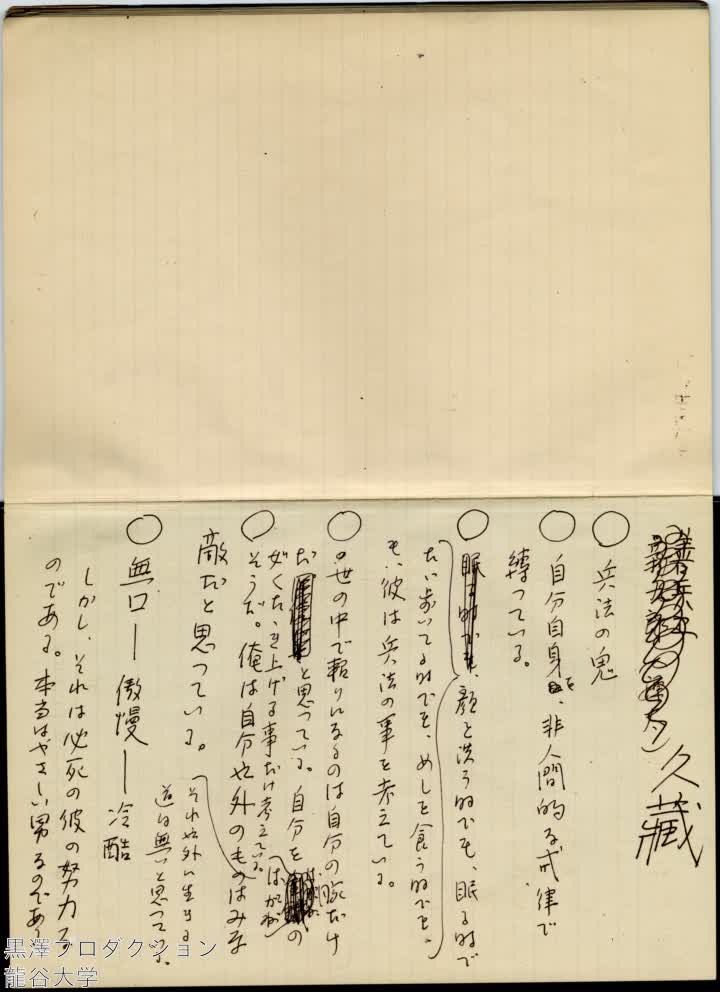 久藏
○ 兵法の鬼
○ 自分自身を、非人間的な戒律で
縛っている。
○ 顔を洗う時でも、眠る時で
歩いてる時でも、めしを食う時でも、
も、彼は兵法の事を考えている。
○ 世の中で頼りになるのは自分の腕だけ
だ と思っている。自分を の
如くたゝき上げる事だけ考えている。(はがね
そうだ。俺は自分以外のものはみな
敵だと思っている。
それ以外に生きる
道は無いと思っている。
○ 無口ー傲慢ー冷酷
しかし、それは必死の彼の努力な
のである。本当はやさしい男なのであ
黒澤プロダクション
龍谷大学